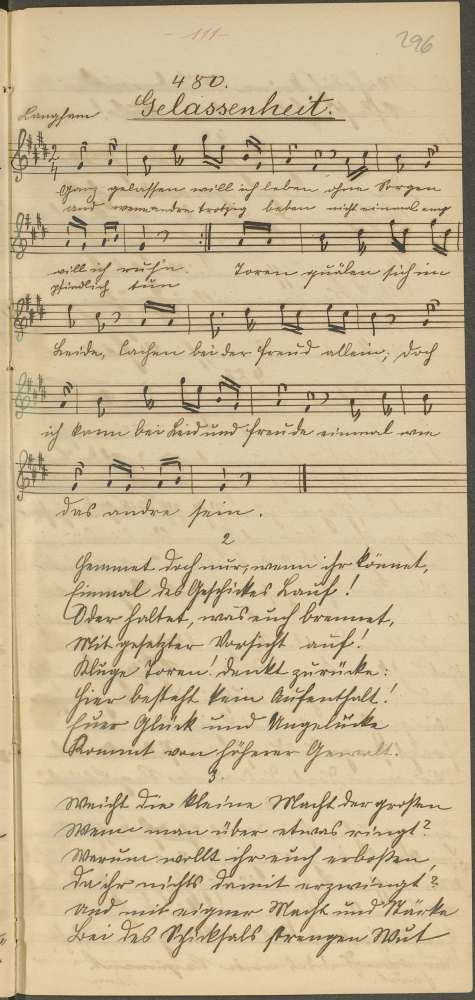 - 111 -
296
480.
Gelassenheit.
Langsam
Ganz gelassen will ich leben ohne Sorgen
und wenn andre trotzig beben nicht einmal emp
will ich ruh'n. Toren quälen sich im
pfindlich tun
Leide, lachen bei der Freud allein; doch
ich kann bei Leid und Freude einmal wie
das andre sein.
2
Hemmet doch nur, wenn ihr könnet,
Einmal des Geschickes Lauf!
Oder haltet, was euch brennet,
Mit gesetzter Vorsicht auf!
Kluge Toren! denkt zurücke:
Hier besteht kein Aufenthalt!
Euer Glück und Ungelücke
Kommt von höherer Gewalt.
3.
Weicht die kleine Macht der großen
Wenn man über etwas ringt?
Warum wollt ihr euch erboßen,
Da ihr nichts damit erzwingt?
Und mit eigner Macht und Stärke
Bei des Schicksals strengen Wut